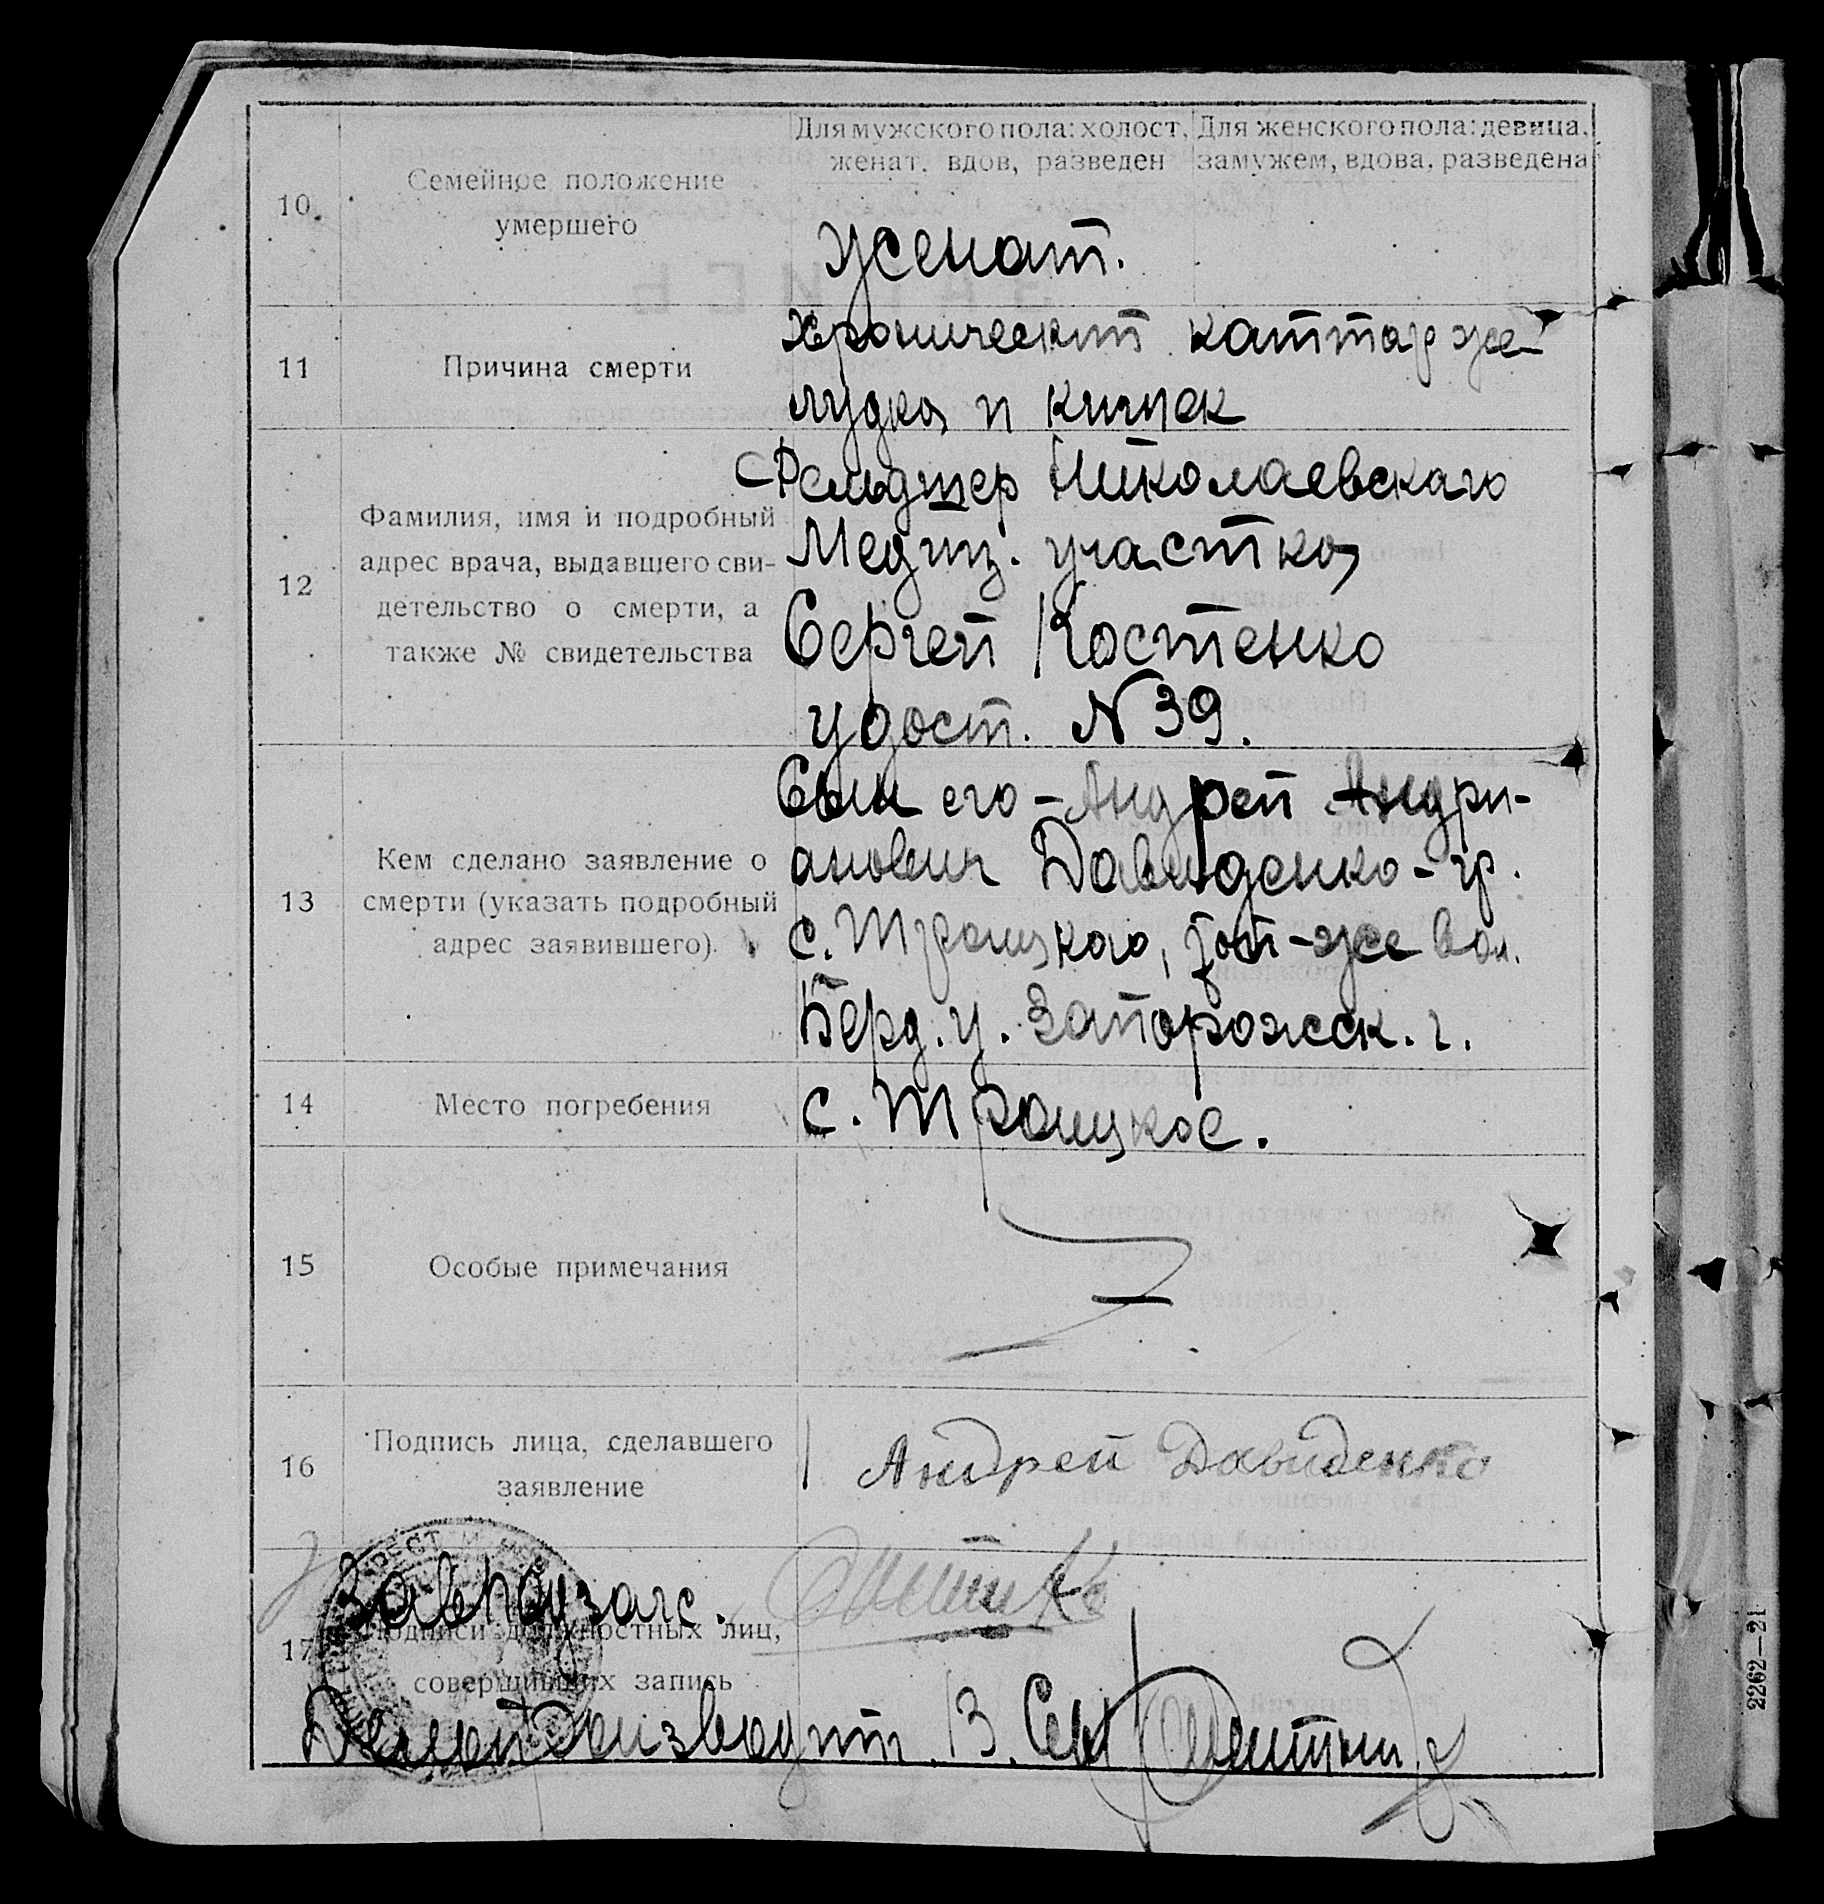 Для мужского пола: холост, женат, вдов, разведен
Для женского пола: девица, замужем, вдова, разведена
10
Семейное положение
умершего
женат.
11
Причина смерти
хронический каттар же-
лудка и кишек
12
Фамилия, имя и подробный
адрес врача, выдавшего сви-
детельство о смерти, а
также № свидетельства
Фельдшер Николаевскаго
Медиц. участка
Сергей Костенко
удост. N 39.
13
Кем сделано заявление о
смерти (указать подробный
адрес заявившего).
Сын его - Андрей Андри-
анович Давиденко - гр.
с. Троицкого, той-же вол.
Берд. у. Запорожск. г.
14
Место погребения
с. Троицкое.
15
Особые примечания
16
Подпись лица, сделавшего
заявление
Андрей Давиденко
17
Завподзагс.
Подписи должностных лиц,
совершивших запись
Делопроизводит.
2262—21